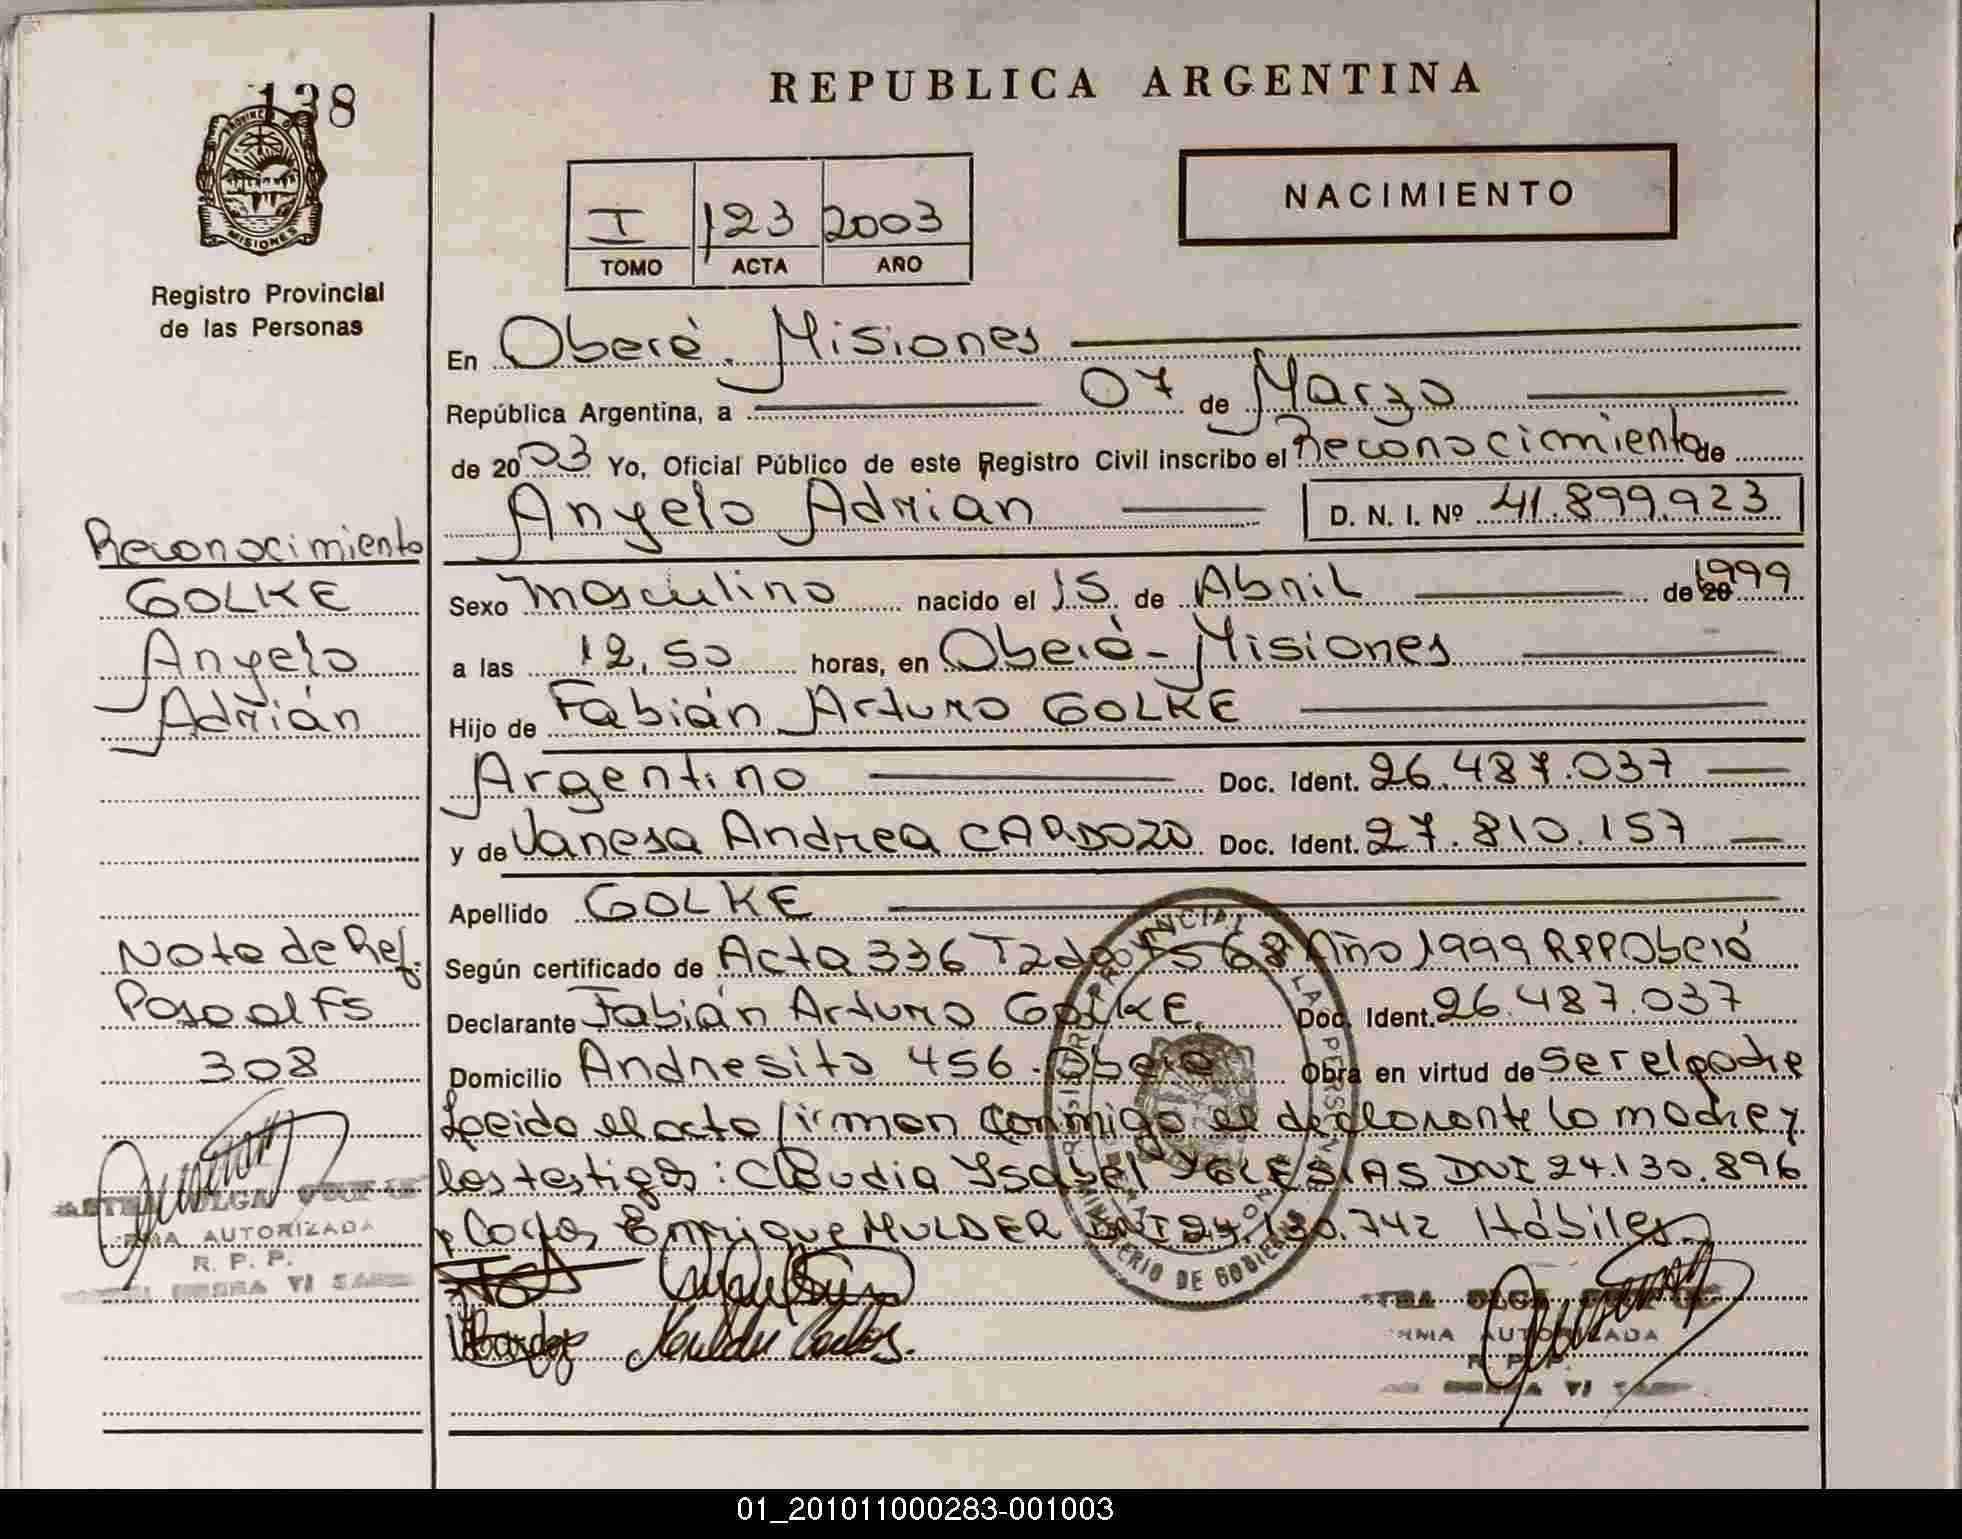 138
PROVINCIA DE
MISIONES
Registro Provincial
de las Personas
REPUBLICA ARGENTINA
I 123 2003
TOMO ACTA AÑO
NACIMIENTO
En Oberá. Misiones
República Argentina, a 07 de Marzo
de 2003 Yo, Oficial Público de este Registro Civil inscribo el Reconocimiento de
Angelo Adrian D. N. I. Nº 41.899.923
Sexo masculino nacido el 15 de Abril de 20 1999
a las 12,50 horas, en Oberá - Misiones
Hijo de Fabián Arturo GOLKE
Argentino Doc. Ident. 26.487.037
y de Vanesa Andrea CARDOZO Doc. Ident. 27.810.157
Apellido GOLKE
Según certificado de Acta 336 T2do FS 68 Año 1999 RPP Oberá
Declarante Fabián Arturo GOLKE Doc. Ident. 26.487.037
Domicilio Andresito 456 - Oberá Obra en virtud de ser el padre
Leida el acta firman conmigo el declarante la madre y
los testigos: Claudia Ysabel YGLESIAS DNI 24.130.896
y Carlos Enrique MULDER DNI 24.130.742 Hábiles
Mulder Carlos.
AUTORIZADA
R. P. P.
Reconocimiento
GOLKE
Angelo
Adrián
Nota de Ref.
Paso al FS
308
OLGA
AUTORIZADA
R. P. P.
REGISTRO PROVINCIAL DE LAS PERSONAS
MINISTERIO DE GOBIERNO
01_201011000283-001003